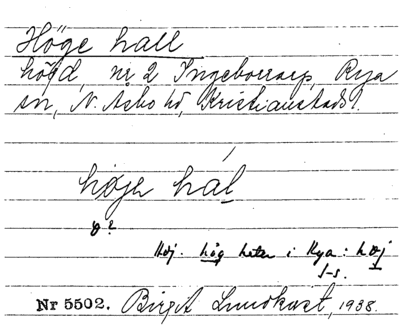 Höge hall
höjd, nr 2 Ingeborrarp, Rya
sn, N. Åsbo hd, Kristianstads l.
høje hál
ø?
Höj. hög heter i Rya: høj
Nr 5502. Birgit Lundkvist, 1938.